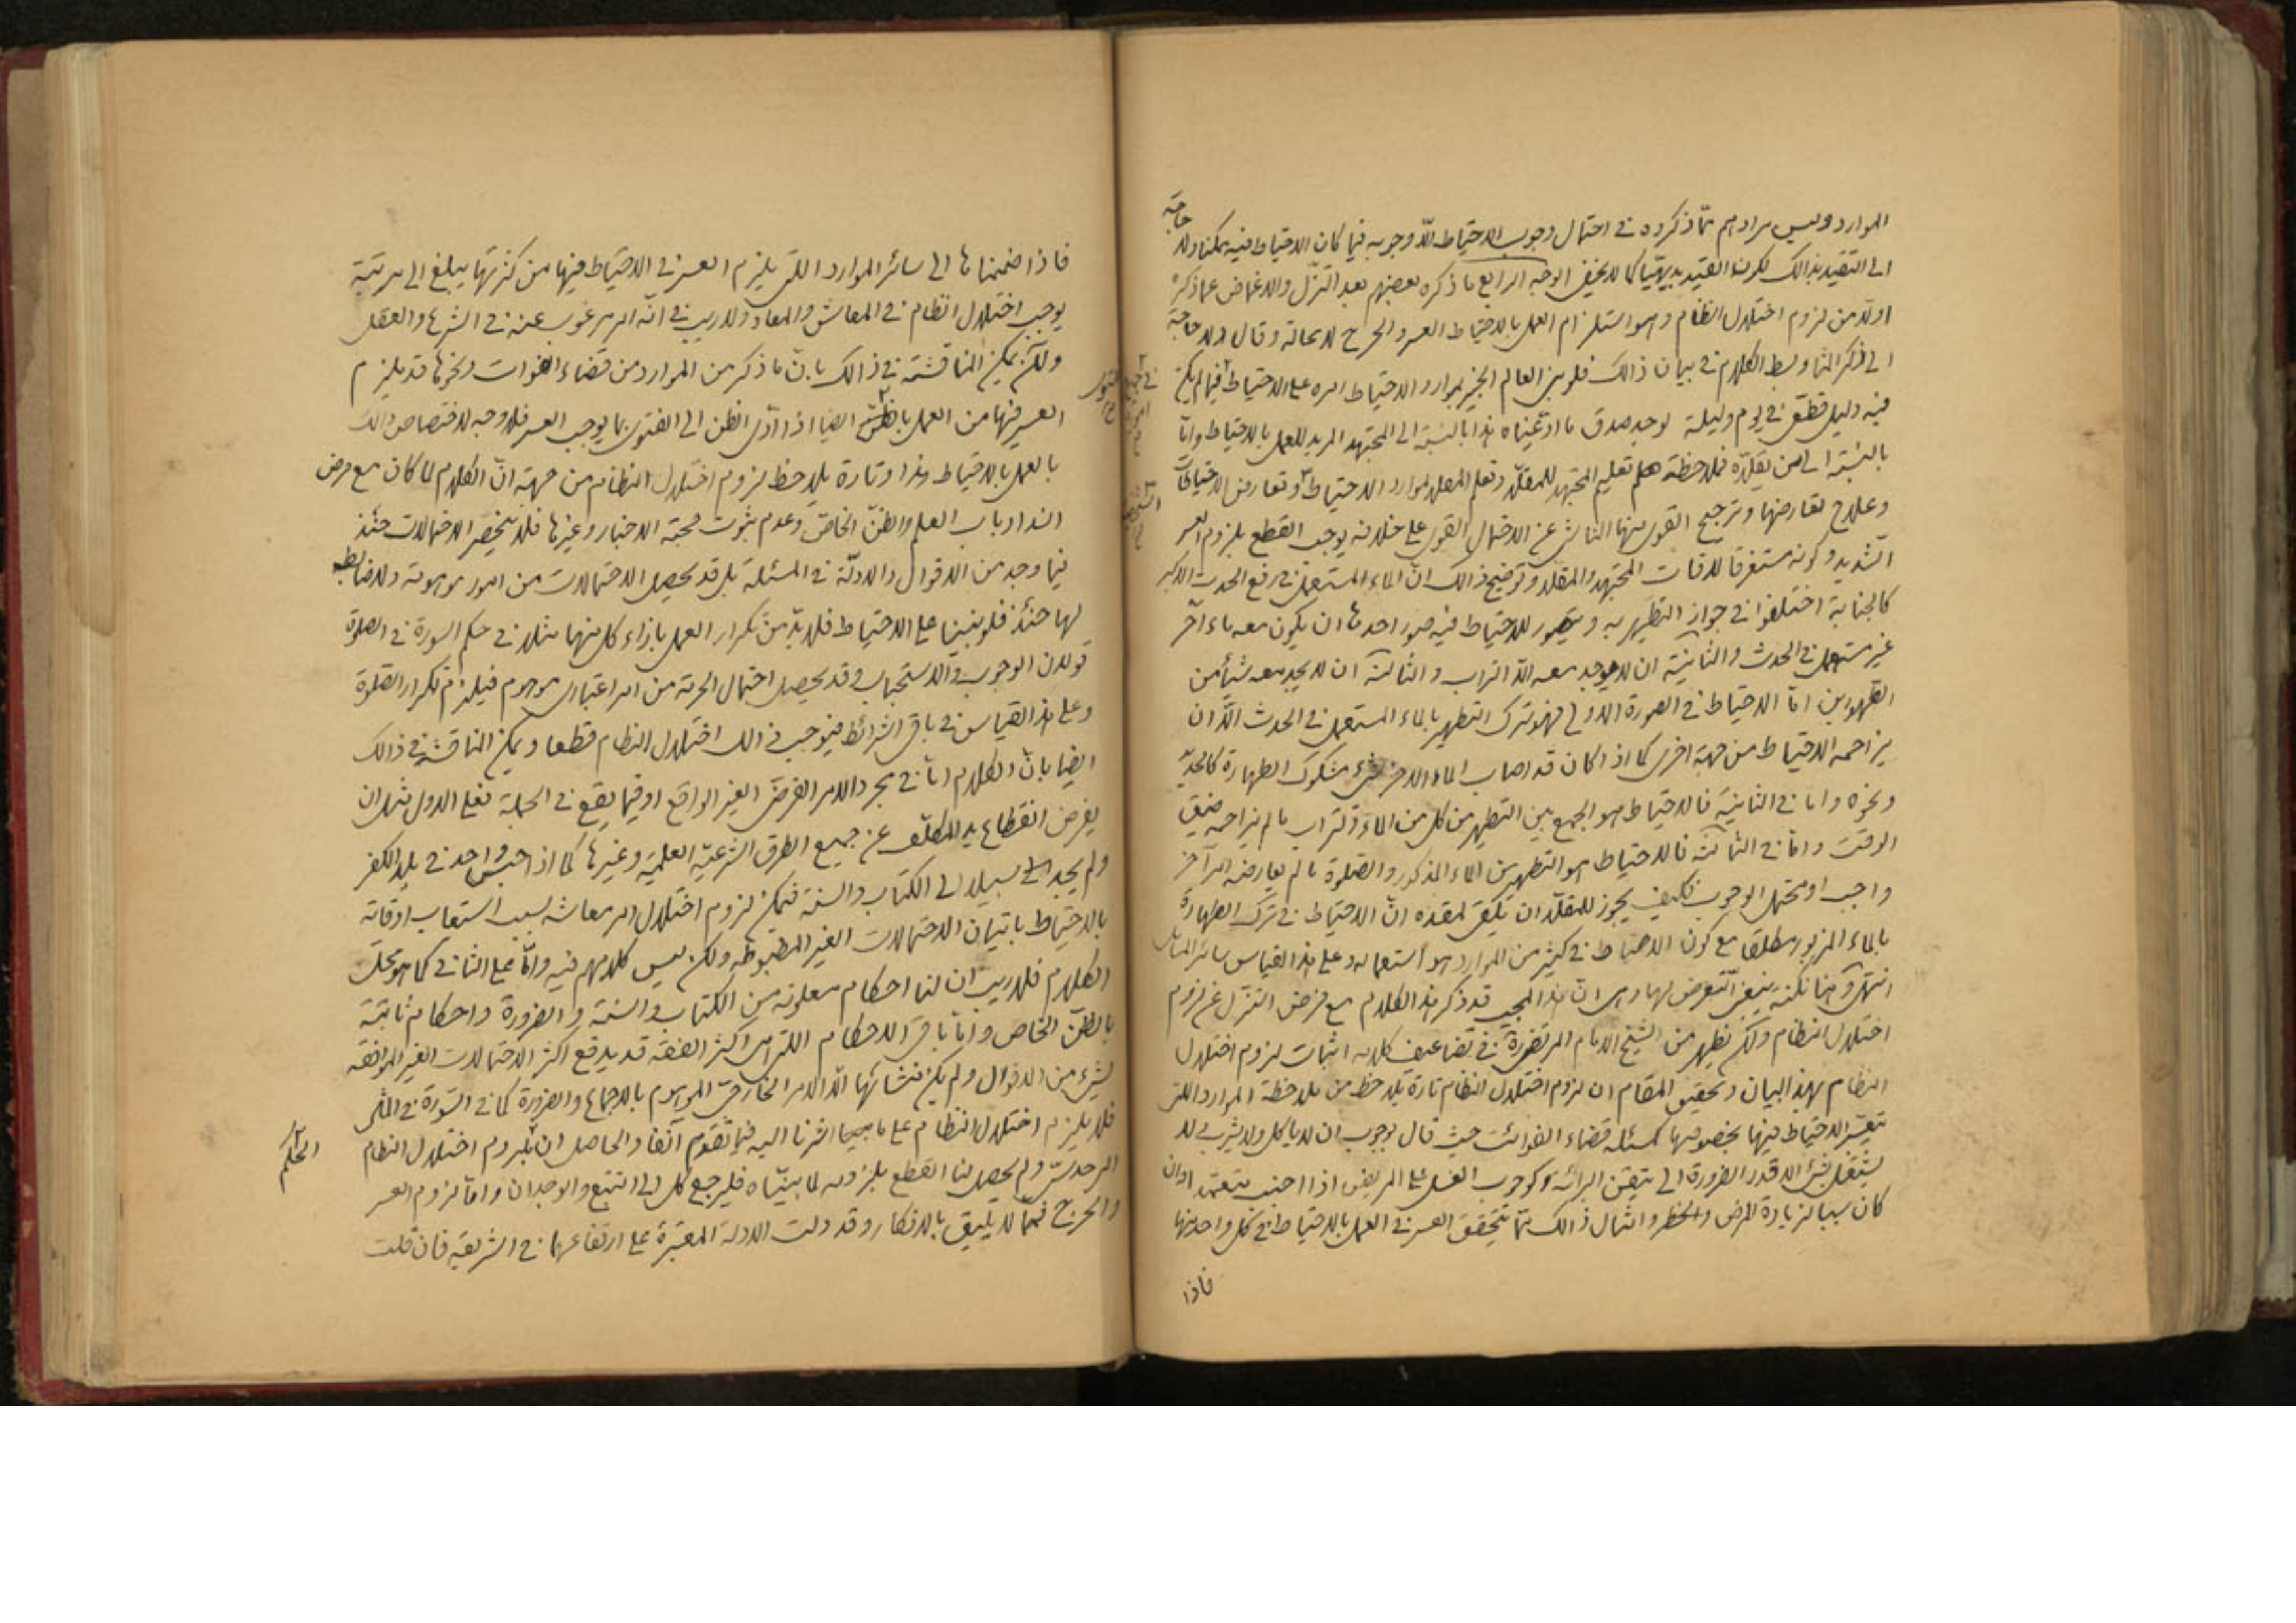 الموارد وليس مرادهم مما ذكروه في احتمال وجوب الاحتياط الا وجوبه فيما كان الاحتياط فيه ممكنا ولا حاجة
الى التقييد بذالك لكون القيد بديهيّا كما لا يخفى الوجه الرابع ما ذكره بعضهم بعد التنزّل والاغماض عما ذكره
اولا من لزوم اختلال النظام وهو استلزام العمل بالاحتياط العسر والحرج لا محالة وقال ولا حاجة
الى ذكر المثال وبسط الكلام في بيان ذالك فلو بنى العالم الخبير بموارد الاحتياط امره على الاحتياط فيما لم يكن
فيه دليل قطعي في يوم وليلة لوجد صدق ما ادعيناه هذا بالنسبة الى المجتهد المريد للعمل بالاحتياط وامّا
بالنسبة الى من يقلّده فملاحظة تعليم المجتهد للمقلّد وتعلم المقلد لموارد الاحتياط وتعارض الاحتياطات
وعلاج تعارضها وترجيح القوى منها الناشى عن الاحتمال القوى على خلافه يوجب القطع بلزوم العسر
الشديد وكونه مستغرقا لاوقات المجتهد والمقلد وتوضيح ذالك انّ الماء المستعمل في رفع الحدث الاكبر
كالجنابة اختلفوا في جواز التطهير به ويتصور للاحتياط فيه صور احدها ان يكون معه ماء آخر
غير مستعمل في الحدث والثانية ان لا يوجد معه الا التراب والثالثة ان لا يجد معه شيأ من
الطهورين امّا الاحتياط في الصورة الاولى فهو ترك التطهير بالماء المستعمل في الحدث الّا ان
يزاحمه الاحتياط من جهة اخرى كما اذا كان قد اصاب الماء الاخر شيء مشكوك الطهارة كالحديد
ونحوه واما في الثانية فالاحتياط هو الجمع بين التطهير من كل من الماء والتراب ما لم يزاحمه ضيق
الوقت وامّا في الثالثة فالاحتياط هو التطهير من الماء المذكور والصلوة ما لم يعارضه امر آخر
واجب او محتمل الوجوب فكيف يجوز للمقلّد ان يلقى لمقلده انّ الاحتياط في ترك الطهارة
بالماء المزبور مطلقا مع كون الاحتياط في كثير من الموارد هو استعماله وعلى هذا القياس سائر المسائل
انتهى وهنا نكتة ينبغي التعرض لها وهى انّ هذا المجيب قد ذكر هذا الكلام مع فرض التنزل عن لزوم
اختلال النظام ولكن يظهر من الشيخ الامام المرتضى في تضاعيف كلامه اثبات لزوم اختلال
النظام بهذا البيان وتحقيق المقام ان لزوم اختلال النظام تارة يلاحظ من ملاحظة الموارد اللتى
يتعسّر الاحتياط فيها بخصوصها كمسئلة قضاء الفوائت حيث قال بوجوب ان لا يأكل ولا يشرب ولا
يشتغل بشيء الا قدر الضرورة الى تيقن البرائة وكوجوب الغسل على المريض اذا اجنب متعمّدا وان
كان سببا لزيادة المرض والخطر وامثال ذالك مما يتحقق العسر في العمل بالاحتياط في كل واحد منها
فاذا
فاذا ضممناها الى سائر الموارد اللتى يلزم العسر في الاحتياط فيها من كثرتها يبلغ الى مرتبة
يوجب اختلال النظام في المعاش والمعاد ولا ريب في انّه امر مرغوب عنه في الشرع والعقل
ولكن يمكن المناقشة في ذالك بانّ ما ذكر من الموارد من قضاء الفوات ونحوها قد يلزم
العسر فيها من العمل بالظنّ ايضا اذا ادّى الظن الى الفتوى بما يوجب العسر فلا وجه لاختصاص ذالك
بالعمل بالاحتياط وهذا وتارة يلاحظ لزوم اختلال النظام من جهة انّ الكلام لما كان مع فرض
انسداد باب العلم والظنّ الخاص وعدم ثبوت حجية الاخبار وغيرها فلا ينحصر الاحتمالات حينئذ
فيما وجد من الاقوال والادلّة في المسئلة بل قد يحصل الاحتمالات من امور موهومة ولا ضابطه
لها حينئذ فلو بنينا على الاحتياط فلا بدّ من تكرار العمل بازاء كل منها مثلا في حكم السورة في الصلوة
قولان الوجوب والاستحباب وقد يحصل احتمال الحرمة من امر اعتباري موهوم فيلزم تكرار الصلوة
وعلى هذا القياس في باقى الشرائط فيوجب ذالك اختلال النظام قطعا ويمكن المناقشة في ذالك
ايضا بانّ الكلام امّا في مجرد الامر الفرضى الغير الواقع او فيما يقع في الجملة فعلى الاول مثل ان
يفرض انقطاع يد المكلّف عن جميع الطرق الشرعيّة العلميّة وغيرها كما اذا حبس واحد في بلد الكفر
ولم يجد سبيلا الى الكتاب والسنة فيمكن لزوم اختلال امر معاشه بسبب استيعاب اوقاته
بالاحتياط باتيان الاحتمالات الغير المضبوطة ولكن ليس كلامهم فيه وامّا على الثاني كما هو محلّ
الكلام فلا ريب ان لنا احكام معلومة من الكتاب والسنة والضرورة واحكام ثابتة
بالظنّ الخاص وامّا باقى الاحكام اللتى هى اكثر الفقه قد يدفع اكثر الاحتمالات الغير الموافقة
لشيء من الاقوال ولم يكن منشائها الا الامر الخارجي الموهوم بالاجماع والضرورة كما في السّورة في المثل
فلا يلزم اختلال النظام على ما اشرنا اليه فيما تقدم آنفا والحاصل ان لزوم اختلال النظام
امر حدسيّ ولم يحصل لنا القطع بلزومه لما بيّناه فليرجع كل الى التتبع والوجدان وامّا لزوم العسر
والحرج فممّا لا يليق بالانكار وقد دلت الادلة المعتبرة على ارتفاعهما في الشريعة فان قلت